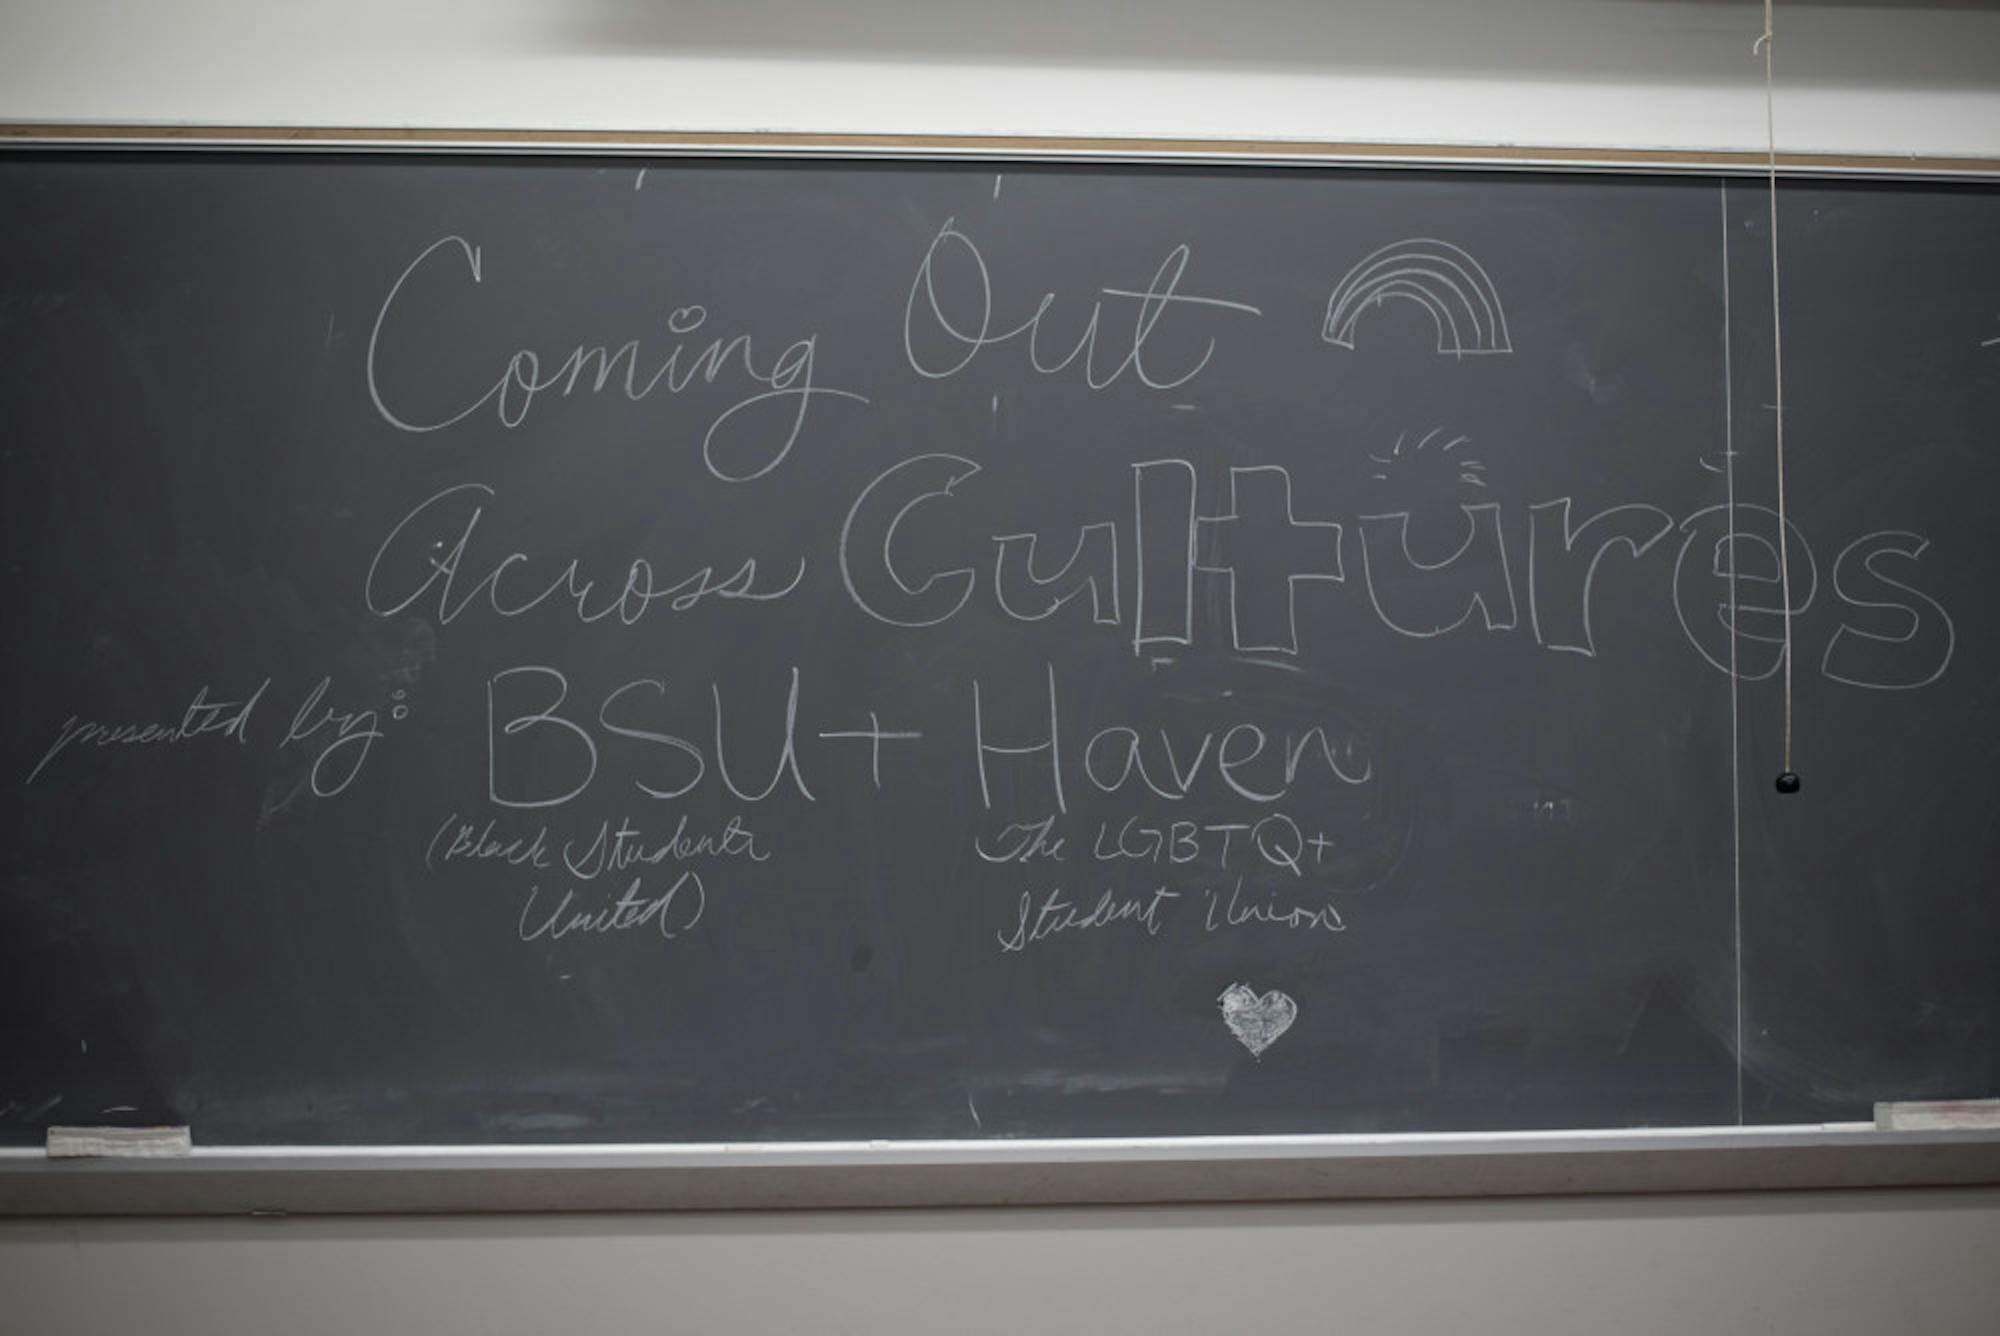 Coming Out
Across Cultures
presented by: BSU + Haven
(Black Students The LGBTQ+
United) Student Union